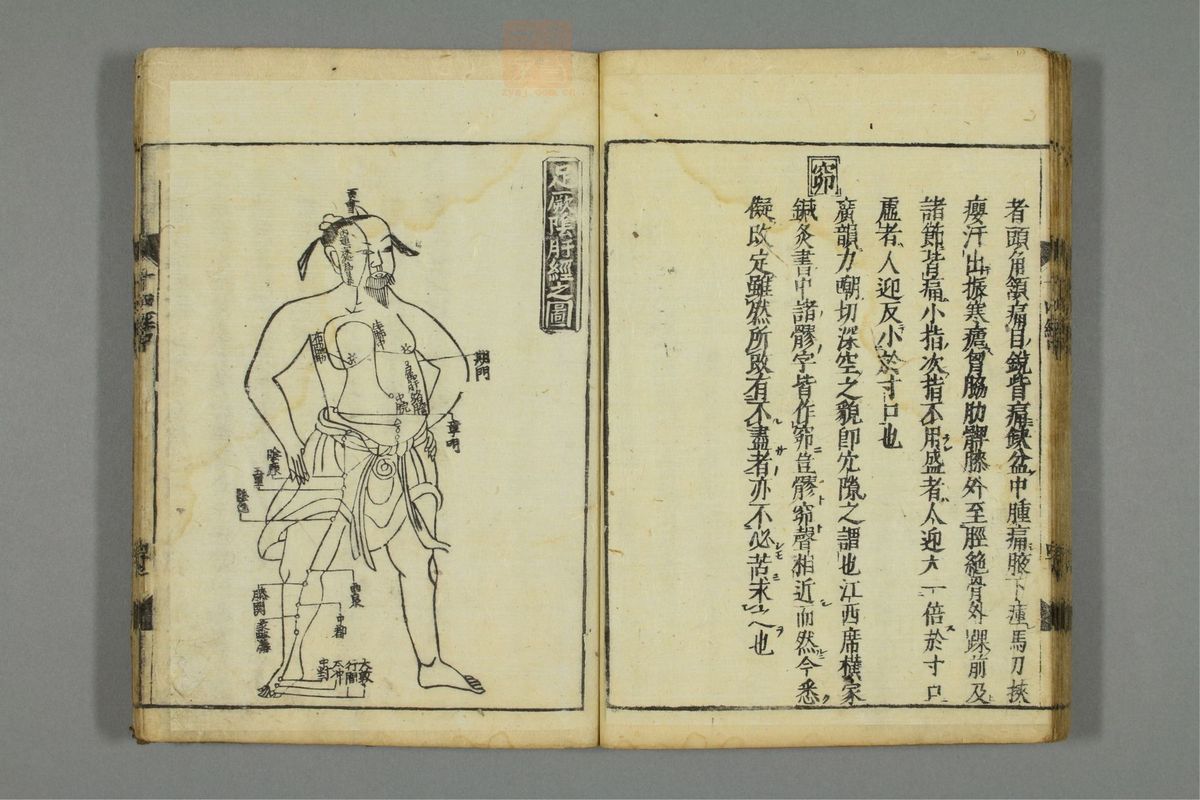 者頭角頷痛目銳眥痛缺盆中腫痛腋下腫馬刀挾
癭汗出振寒瘧胷脇肋髀膝外至脛絶骨外踝前及
諸節皆痛小指次指不用盛者人迎大一倍於寸口
虛者人迎反小於寸口也
窌
廣韻力嘲切深空之貌卽穴隙之謂也江西席橫家
鍼灸書中諸髎字皆作窌豈髎窌聲相近而然今悉
儗改定雖然所改有不盡者亦不必苦求之也
足厥陰肝經之圖
期門
章門
中脘
陰廉
五里
陰包
曲泉
膝關
中都
蠡溝
中封
太冲
行間
大敦